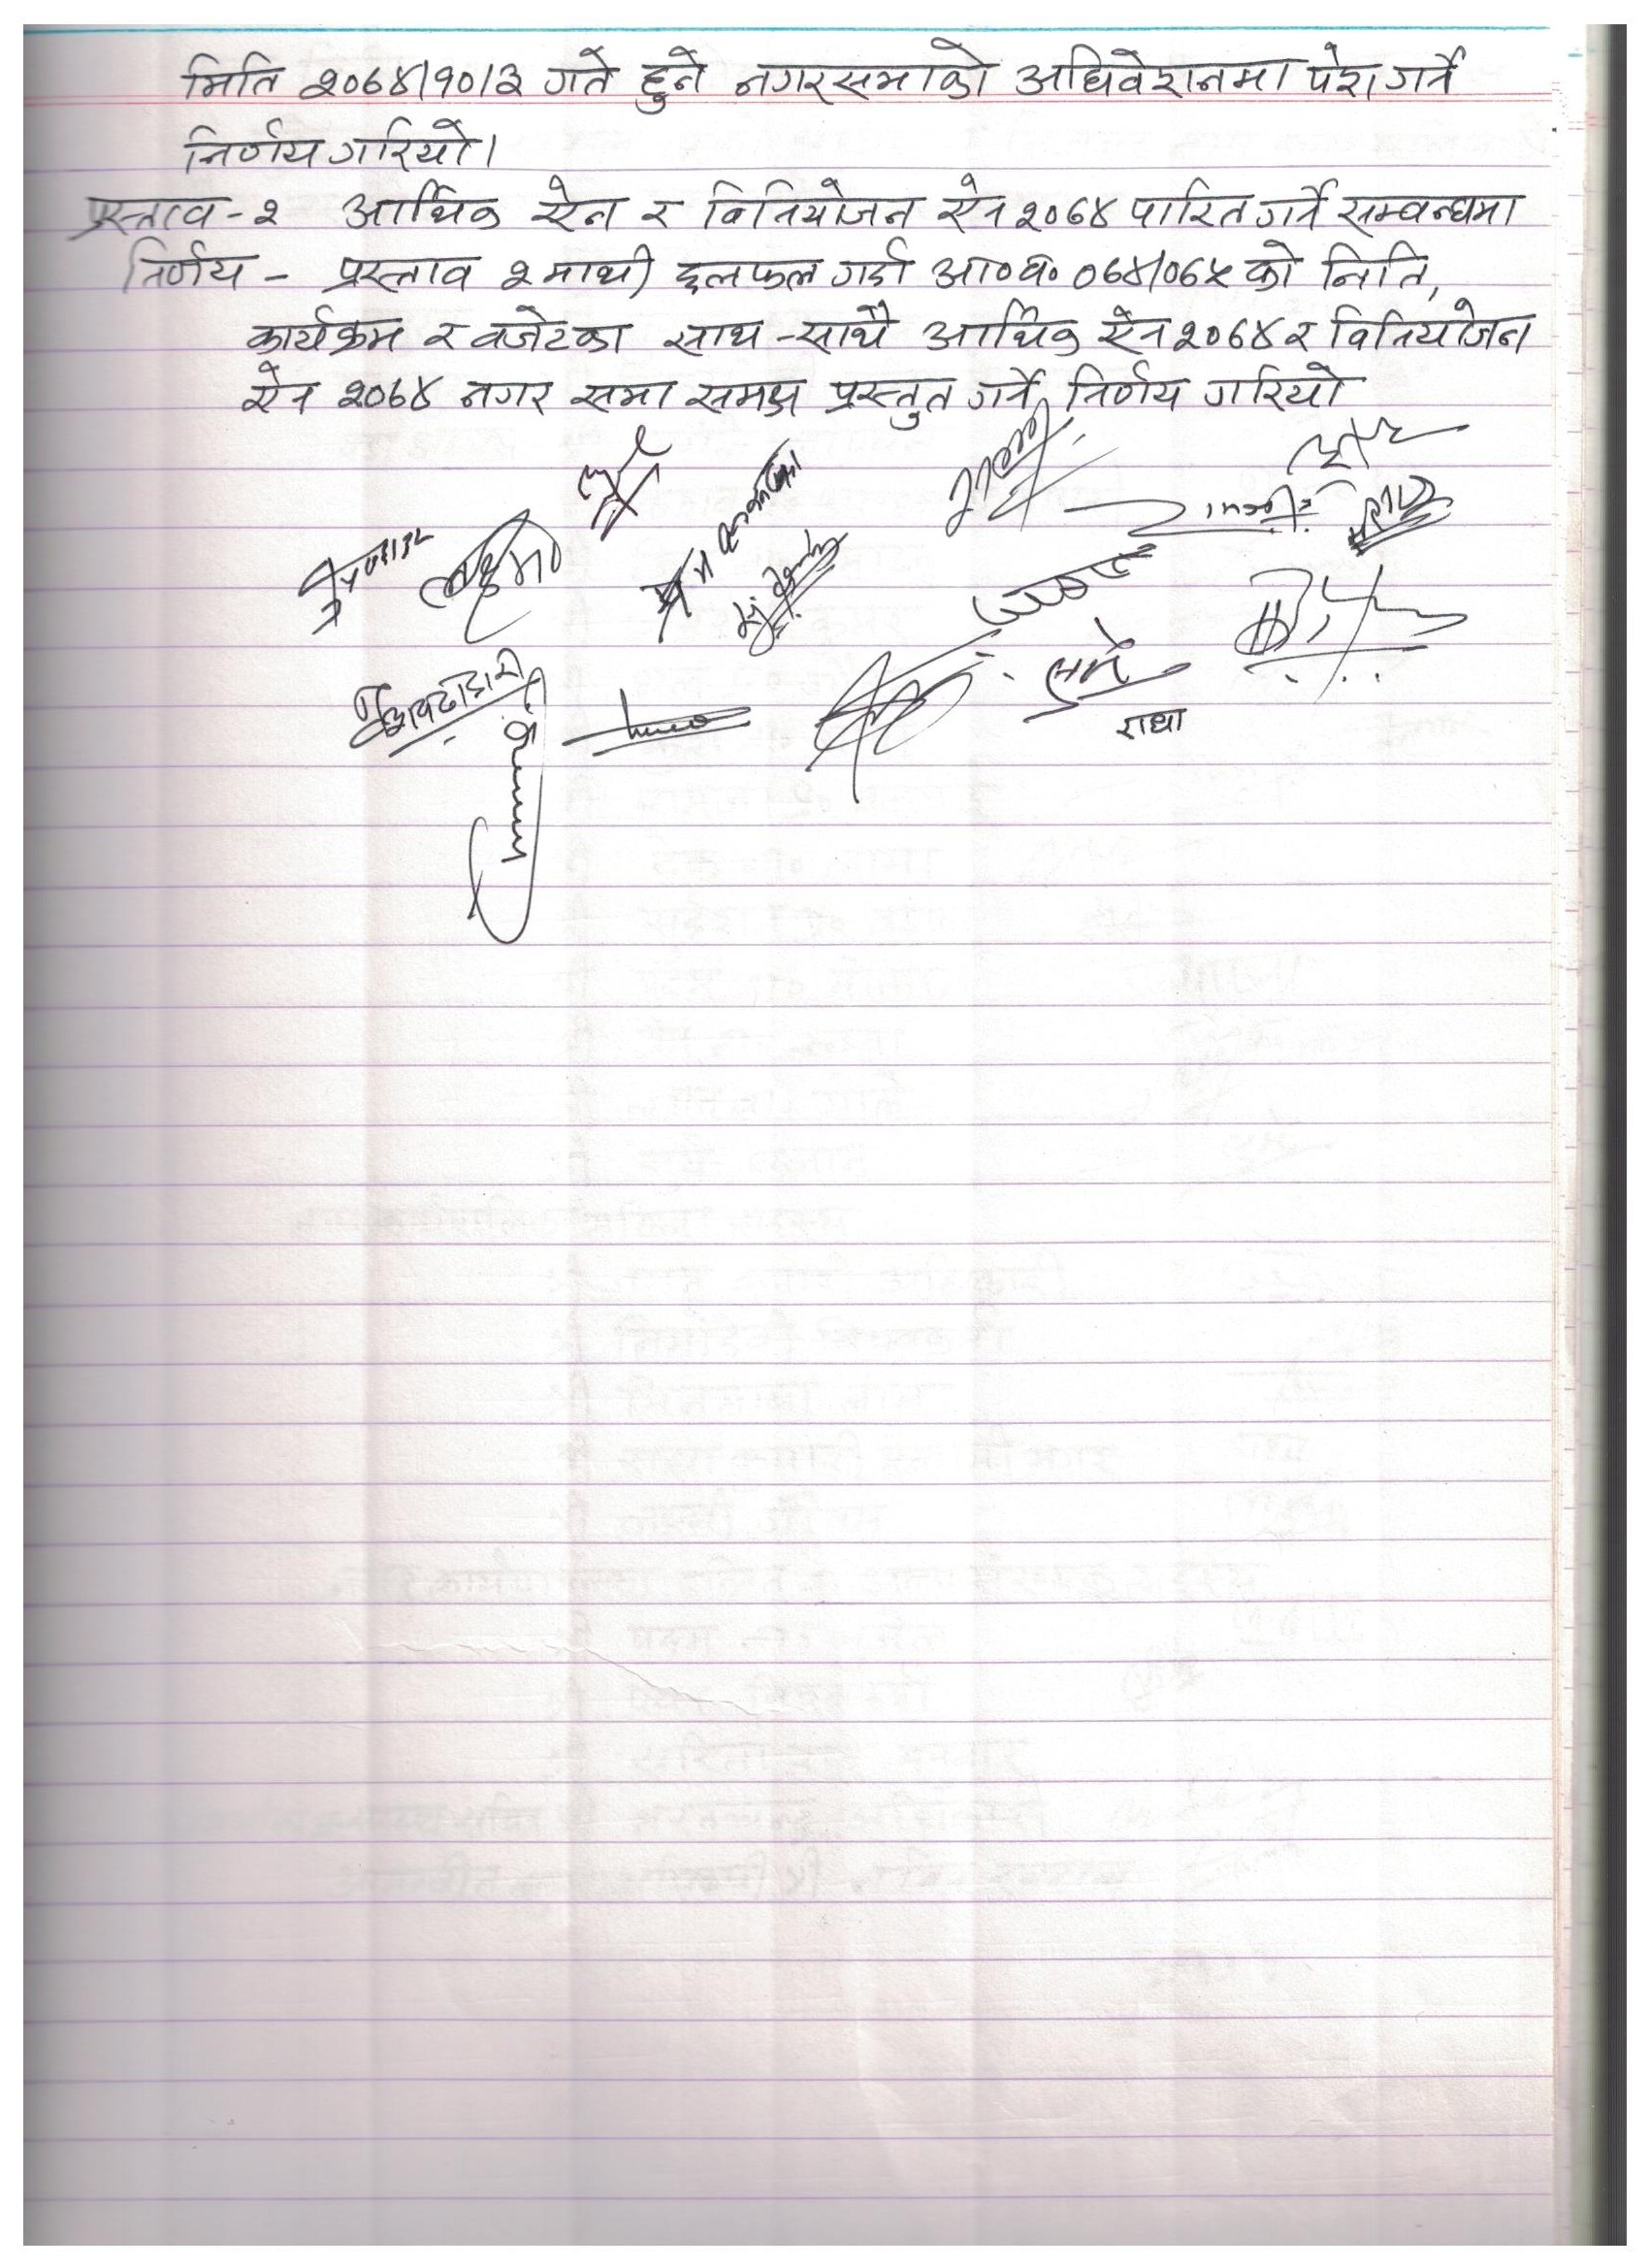 मिति २०७४/१०/३ गते हुने नगरसभाको अधिवेशनमा पेश गर्ने
निर्णय गरियो।
प्रस्ताव - २ आर्थिक ऐन र विनियोजन ऐन २०७४ पारित गर्ने सम्वन्धमा
निर्णय - प्रस्ताव २ माथी छलफल गर्दा आ०व० ०७४/०७५ को निति,
कार्यक्रम र वजेटका साथ-साथै आर्थिक ऐन २०७४ र विनियोजन
ऐन २०७४ नगर सभा समक्ष प्रस्तुत गर्ने निर्णय गरियो
राधा